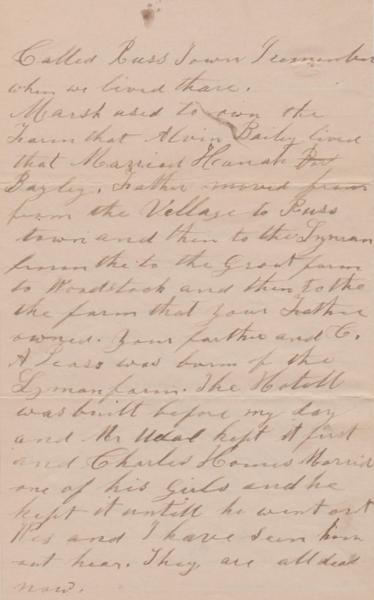 Called Russ Town I remember
when we lived thare.
Marsh used to own the
Farm that Alvin Bailey lived
that Married Hanah
Bayley. Father moved from
from the Vellage to Russ
town and then to the Lyman
from the to the Grout farm
to Woodstock and then to the
the farm that your Father
owned. Your farther and C.
A was born of the
Lyman farm. The Hotell
was built before my day
and Mr Udal kept it first
and Charles Homes Married
one of his Girls and he
kept it untill he went out
Wes and I have seen him
out hear. They are all dead
now.